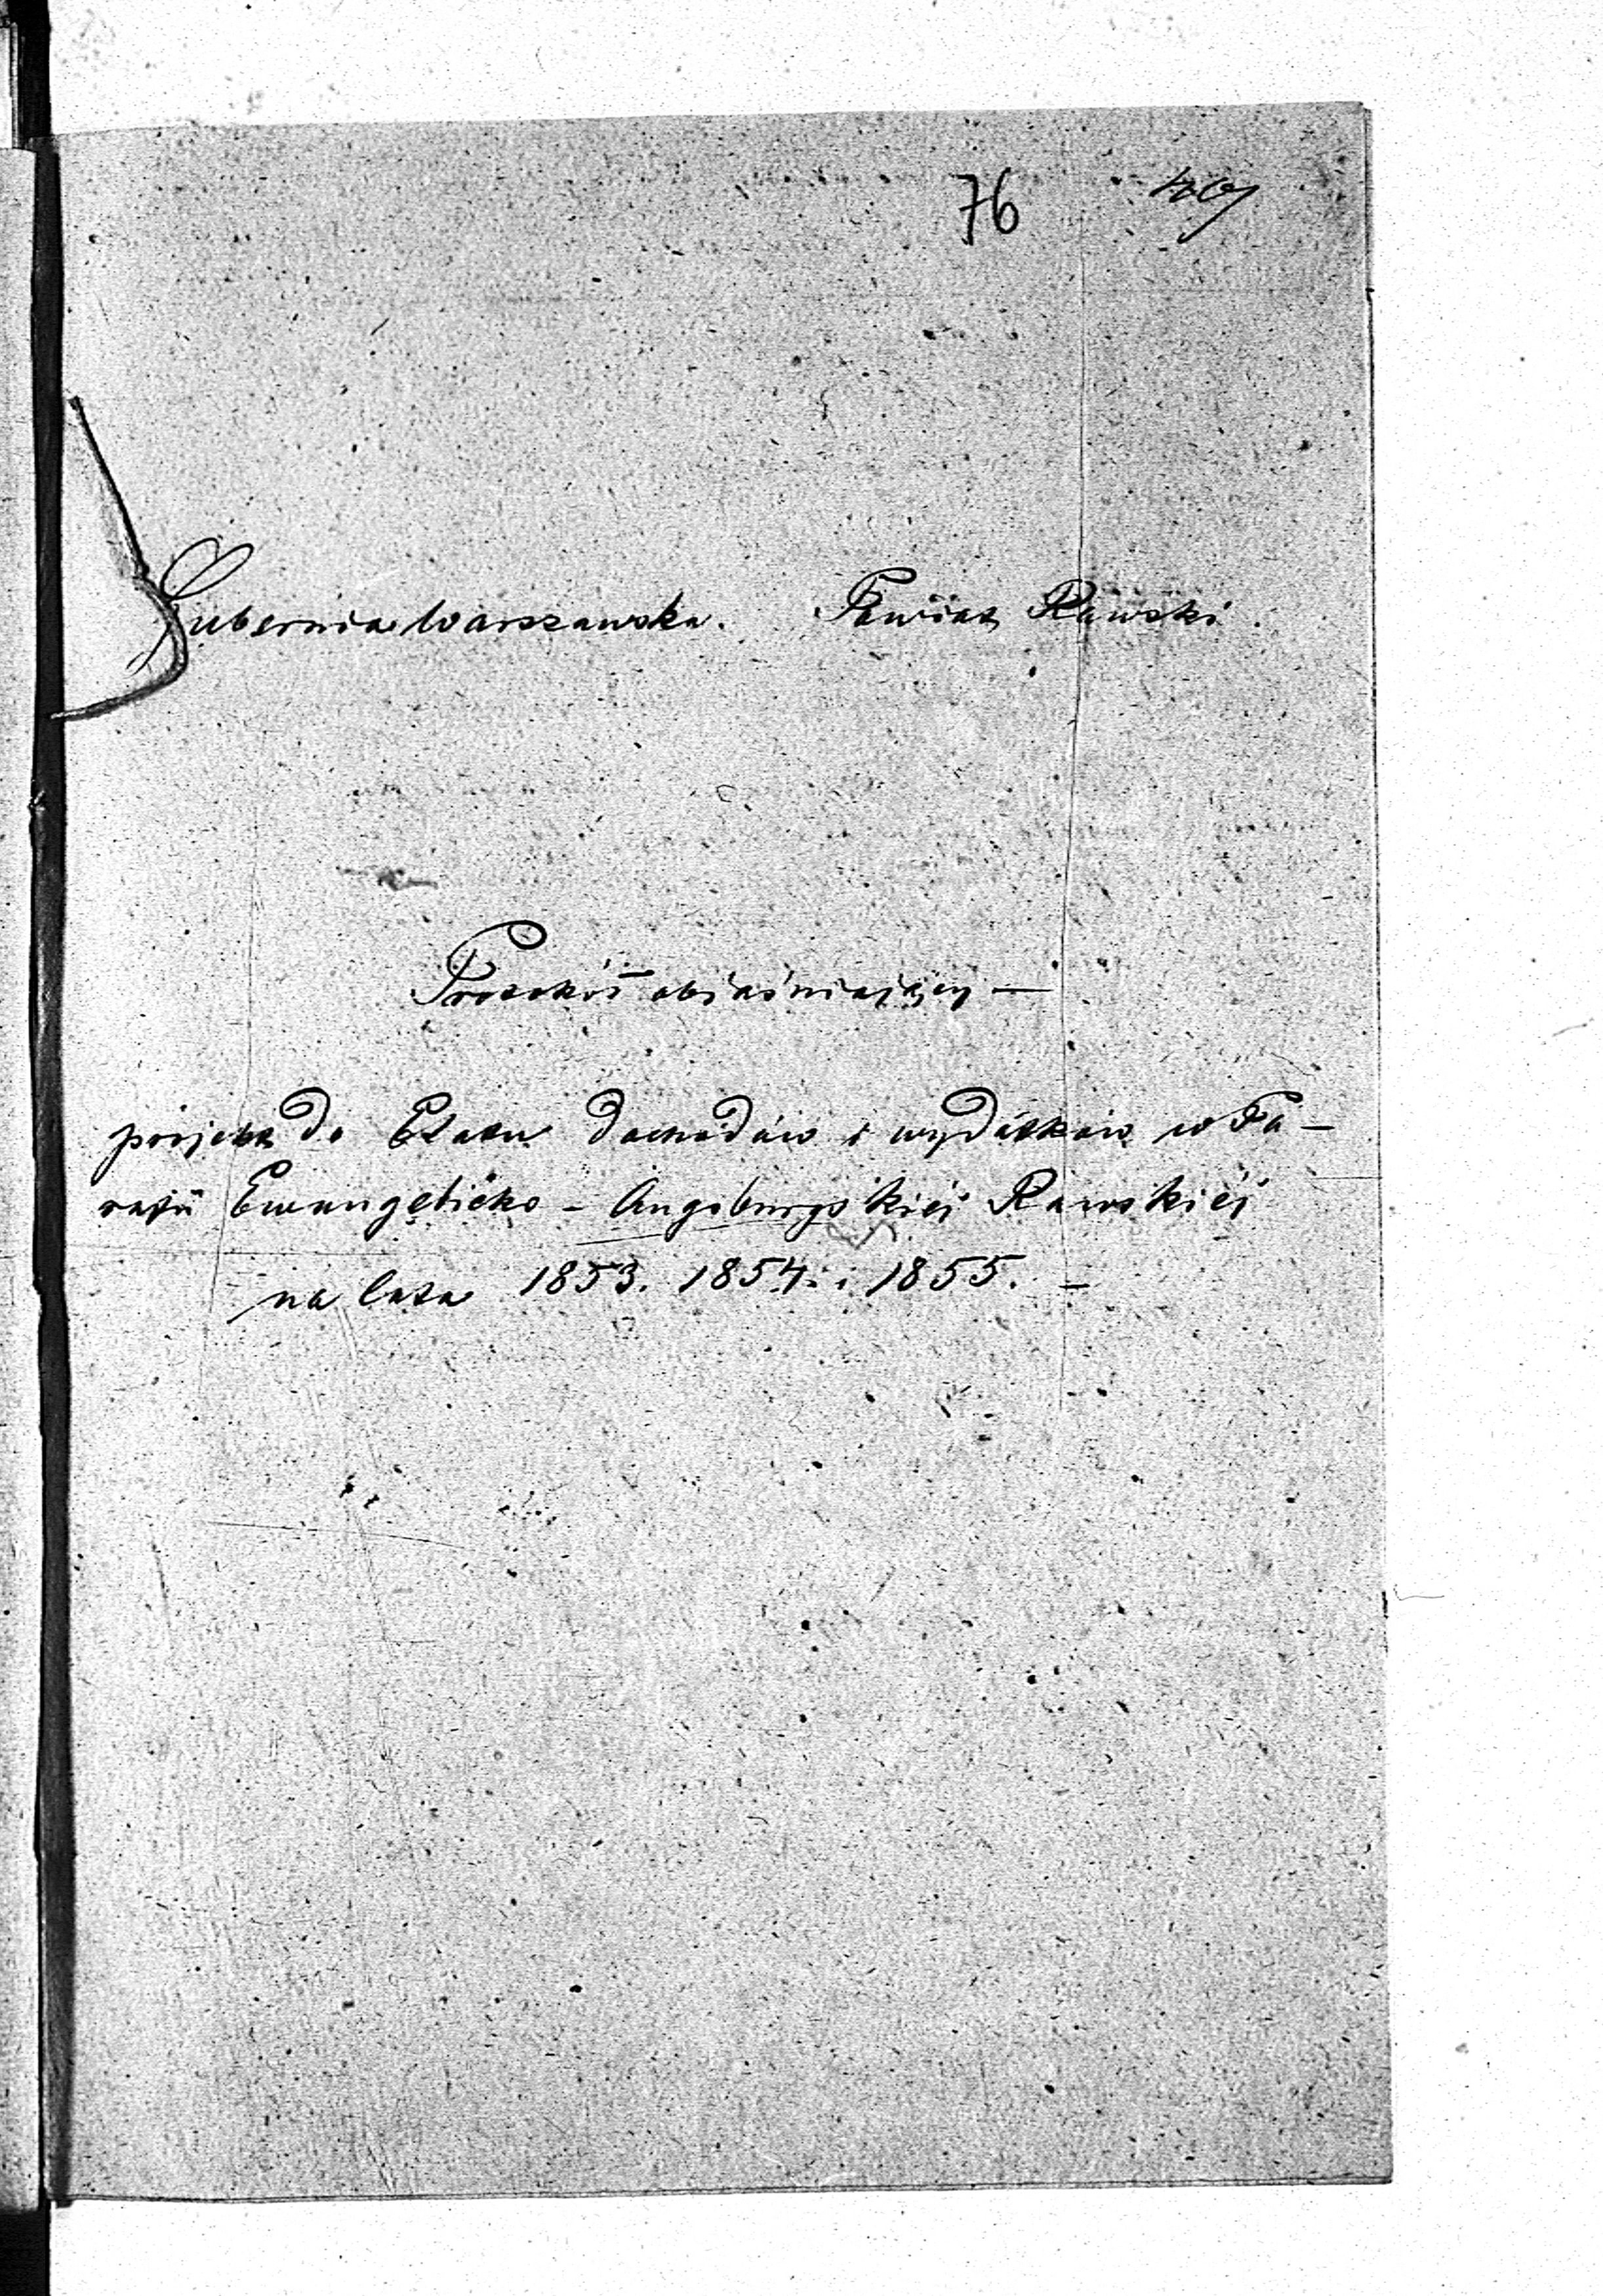 76
Gubernia Warszawska. Powiat Rawski.
Protokół objaśniający —
projekt do Etatu dochodów i wydatków w Pa-
rafii Ewangelicko - Augsburgskiéj Rawskiéj
na lata 1853. 1854. i 1855. —